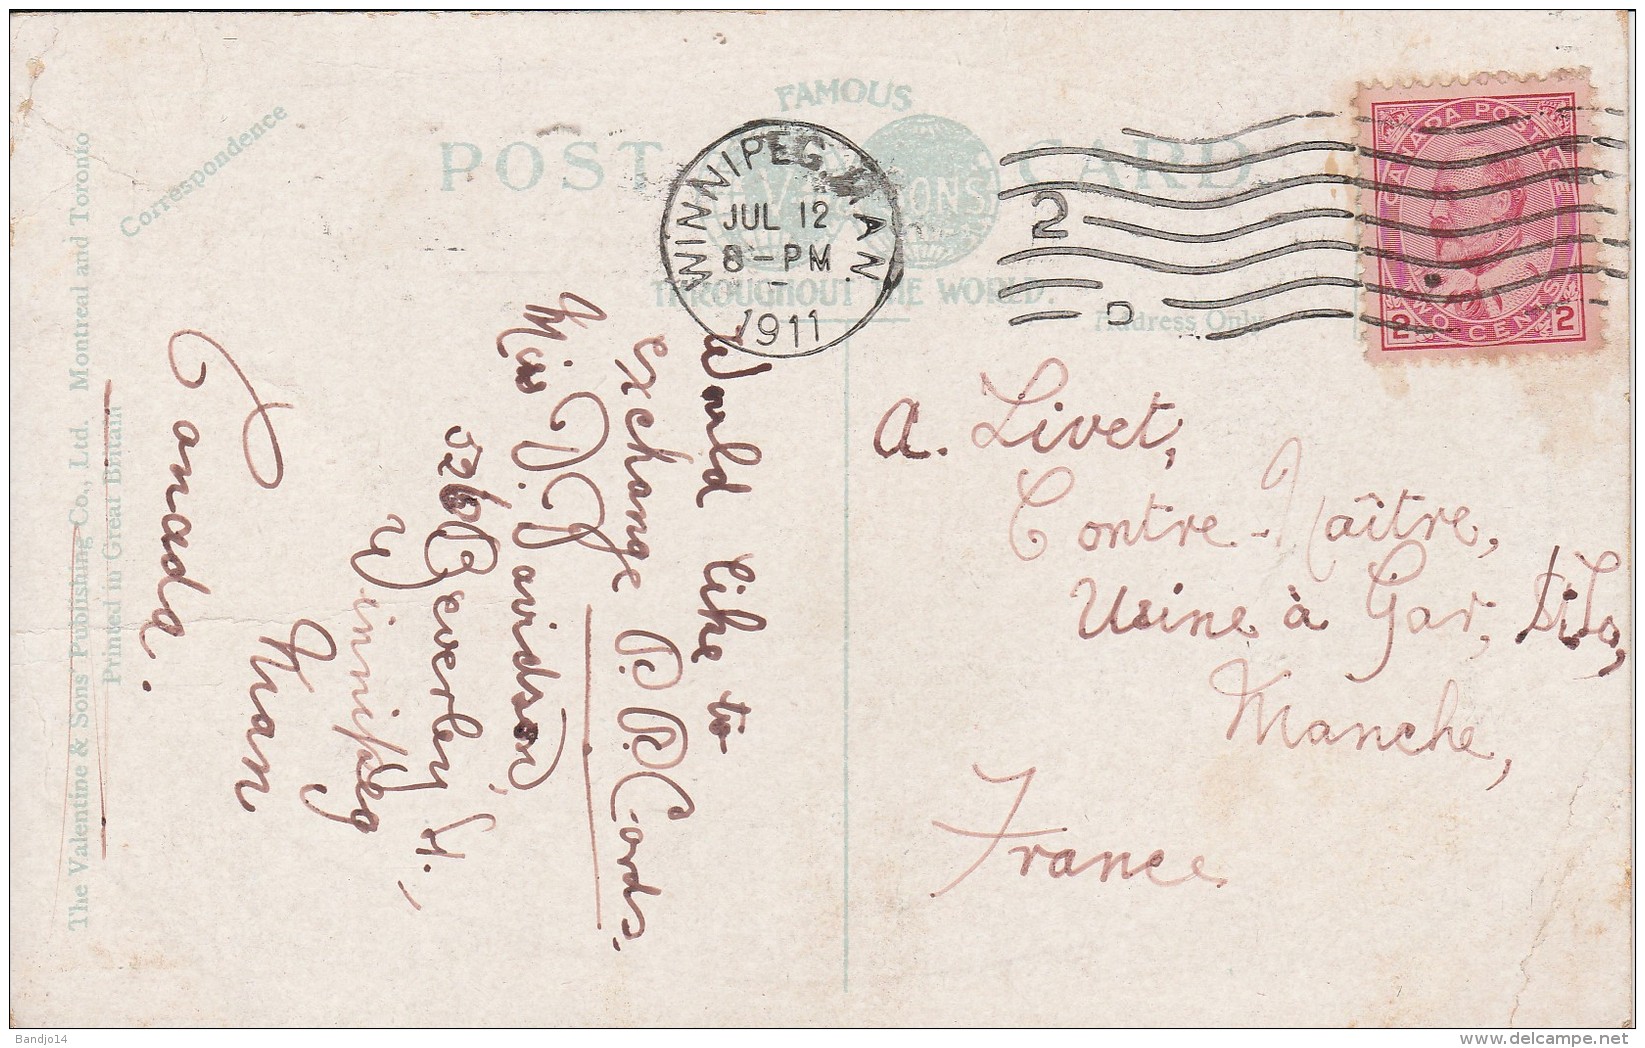 FAMOUS
POST CARD
THROUGHOUT THE WORLD.
Correspondence
Address Only
The Valentine & Sons Publishing Co., Ltd. Montreal and Toronto
Printed in Great Britain
WINNIPEG. MAN
JUL 12
8-PM
1911
2
D
CANADA POSTAGE
2 TWO CENTS 2
Would like to
exchange P.P. Cards.
Miss D. Davidson,
526 Beverley St.,
Winnipeg
Man
Canada.
A. Livet,
Contre-Maître,
Usine à Gaz, St Lo,
Manche,
France
Bandjo14
delcampe.net